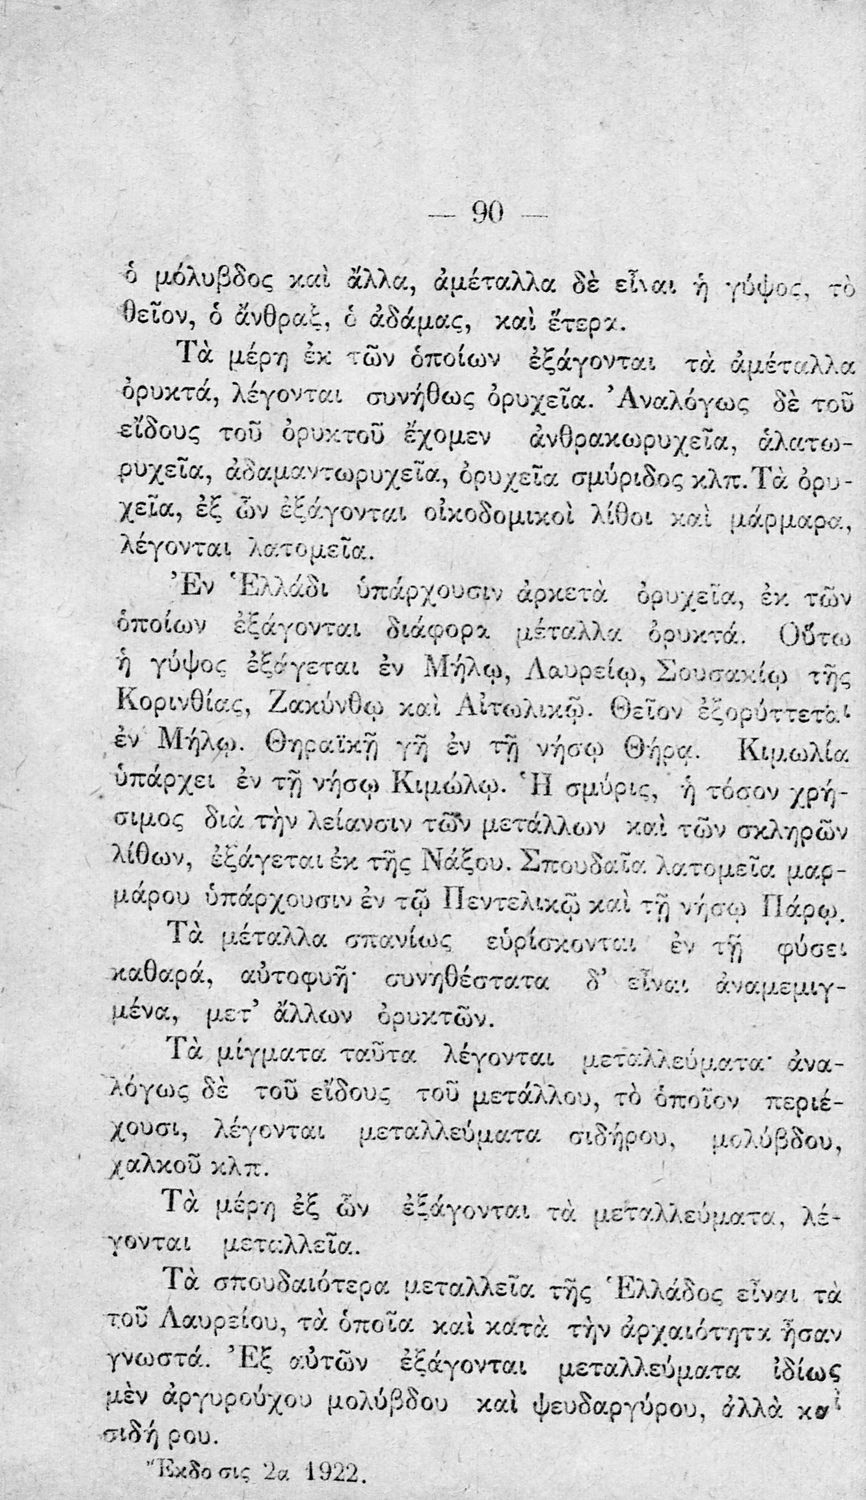 — 90 —
ὁ μόλυβδος καὶ ἄλλα, ἀμέταλλα δὲ εἶναι ἡ γύψος, τὸ
θεῖον, ὁ ἄνθραξ, ὁ ἀδάμας, καὶ ἕτερα.
Τὰ μέρη ἐκ τῶν ὁποίων ἐξάγονται τὰ ἀμέταλλα
ὀρυκτά, λέγονται συνήθως ὀρυχεῖα. Ἀναλόγως δὲ τοῦ
εἴδους τοῦ ὀρυκτοῦ ἔχομεν ἀνθρακωρυχεῖα, ἁλατω-
ρυχεῖα, ἀδαμαντωρυχεῖα, ὀρυχεῖα σμύριδος κλπ. Τὰ ὀρυ-
χεῖα, ἐξ ὧν ἐξάγονται οἰκοδομικοὶ λίθοι καὶ μάρμαρα,
λέγονται λατομεῖα.
Ἐν Ἑλλάδι ὑπάρχουσιν ἀρκετὰ ὀρυχεῖα, ἐκ τῶν
ὁποίων ἐξάγονται διάφορα μέταλλα ὀρυκτά. Οὕτω
ἡ γύψος ἐξάγεται ἐν Μήλῳ, Λαυρείῳ, Σουσακίῳ τῆς
Κορινθίας, Ζακύνθῳ καὶ Αἰτωλικῷ. Θεῖον ἐξορύττεται
ἐν Μήλῳ. Θηραϊκῆ γῆ ἐν τῇ νήσῳ Θήρᾳ. Κιμωλία
ὑπάρχει ἐν τῇ νήσῳ Κιμώλῳ. Ἡ σμύρις, ἡ τόσον χρή-
σιμος διὰ τὴν λείανσιν τῶν μετάλλων καὶ τῶν σκληρῶν
λίθων, ἐξάγεται ἐκ τῆς Νάξου. Σπουδαῖα λατομεῖα μαρ-
μάρου ὑπάρχουσιν ἐν τῷ Πεντελικῷ καὶ τῇ νήσῳ Πάρῳ.
Τὰ μέταλλα σπανίως εὑρίσκονται ἐν τῇ φύσει
καθαρά, αὐτοφυῆ· συνηθέστατα δ’ εἶναι ἀναμεμιγ-
μένα, μετ’ ἄλλων ὀρυκτῶν.
Τὰ μίγματα ταῦτα λέγονται μεταλλεύματα· ἀνα-
λόγως δὲ τοῦ εἴδους τοῦ μετάλλου, τὸ ὁποῖον περιέ-
χουσι, λέγονται μεταλλεύματα σιδήρου, μολύβδου,
χαλκοῦ κλπ.
Τὰ μέρη ἐξ ὧν ἐξάγονται τὰ μεταλλεύματα, λέ-
γονται μεταλλεῖα.
Τὰ σπουδαιότερα μεταλλεῖα τῆς Ἑλλάδος εἶναι τὰ
τοῦ Λαυρείου, τὰ ὁποῖα καὶ κατὰ τὴν ἀρχαιότητα ἦσαν
γνωστά. Ἐξ αὐτῶν ἐξάγονται μεταλλεύματα ἰδίως
μὲν ἀργυρούχου μολύβδου καὶ ψευδαργύρου, ἀλλὰ καὶ
σιδή ρου.
Ἔκδο σις 2α 1922.